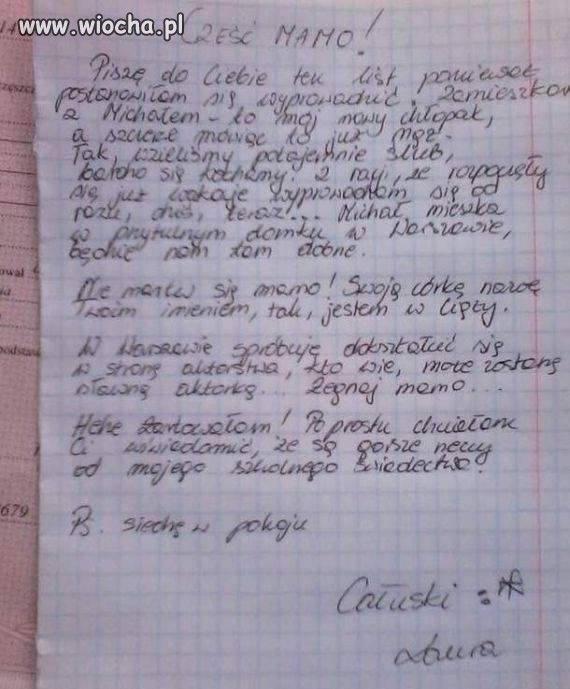 www.wiocha.pl
CZEŚĆ MAMO!
Piszę do Ciebie ten list ponieważ
postanowiłam się wyprowadzić. Zamieszkam
z Michałem - to mój nowy chłopak,
a szczerze mówiąc to już mąż.
Tak, wzieliśmy potajemnie ślub,
bardzo się kochamy. Z racji, że rozpoczęły
się już wakacje wyprowadzam się od
razu, dziś, teraz... Michał mieszka
w przytulnym domku w Warszawie,
będzie nam tam dobrze.
Nie martw się mamo! Swoją córkę nazwę
twoim imieniem, tak, jestem w ciąży.
W Warszawie spróbuję dokształcić się
w stronę aktorstwa, kto wie, może zostanę
sławną aktorką... Żegnaj mamo...
Hehe żartowałam! Po prostu chciałam
Ci uświadomić, że są gorsze rzeczy
od mojego szkolnego świadectwa!
Ps. siedzę w pokoju
Całuski :*
Laura
679